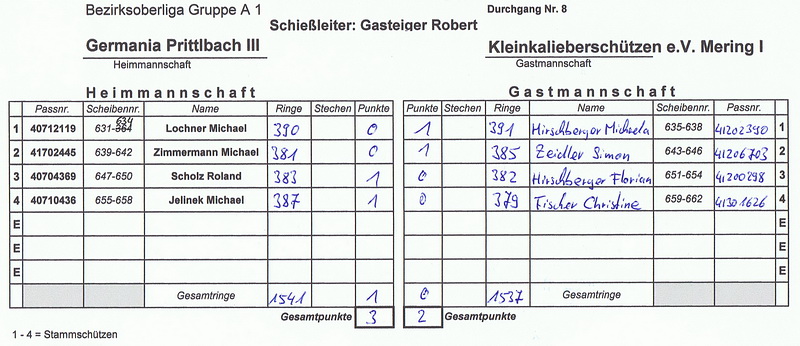 Bezirksoberliga Gruppe A 1
Durchgang Nr. 8
Schießleiter: Gasteiger Robert
Germania Prittlbach III
Kleinkalieberschützen e.V. Mering I
Heimmannschaft
Gastmannschaft
Heimmannschaft
Gastmannschaft
Passnr. Scheibennr. Name Ringe Stechen Punkte Punkte Stechen Ringe Name Scheibennr. Passnr.
1 40712119 631-364 634 Lochner Michael 390 0 1 391 Hirschberger Michaela 635-638 41202390 1
2 41702445 639-642 Zimmermann Michael 381 0 1 385 Zeidler Simon 643-646 41206703 2
3 40704369 647-650 Scholz Roland 383 1 0 382 Hirschberger Florian 651-654 41200298 3
4 40710436 655-658 Jelinek Michael 387 1 0 379 Fischer Christine 659-662 41301626 4
E E
E E
E E
Gesamtringe 1541 1 0 1537 Gesamtringe
Gesamtpunkte 3 2 Gesamtpunkte
1 - 4 = Stammschützen